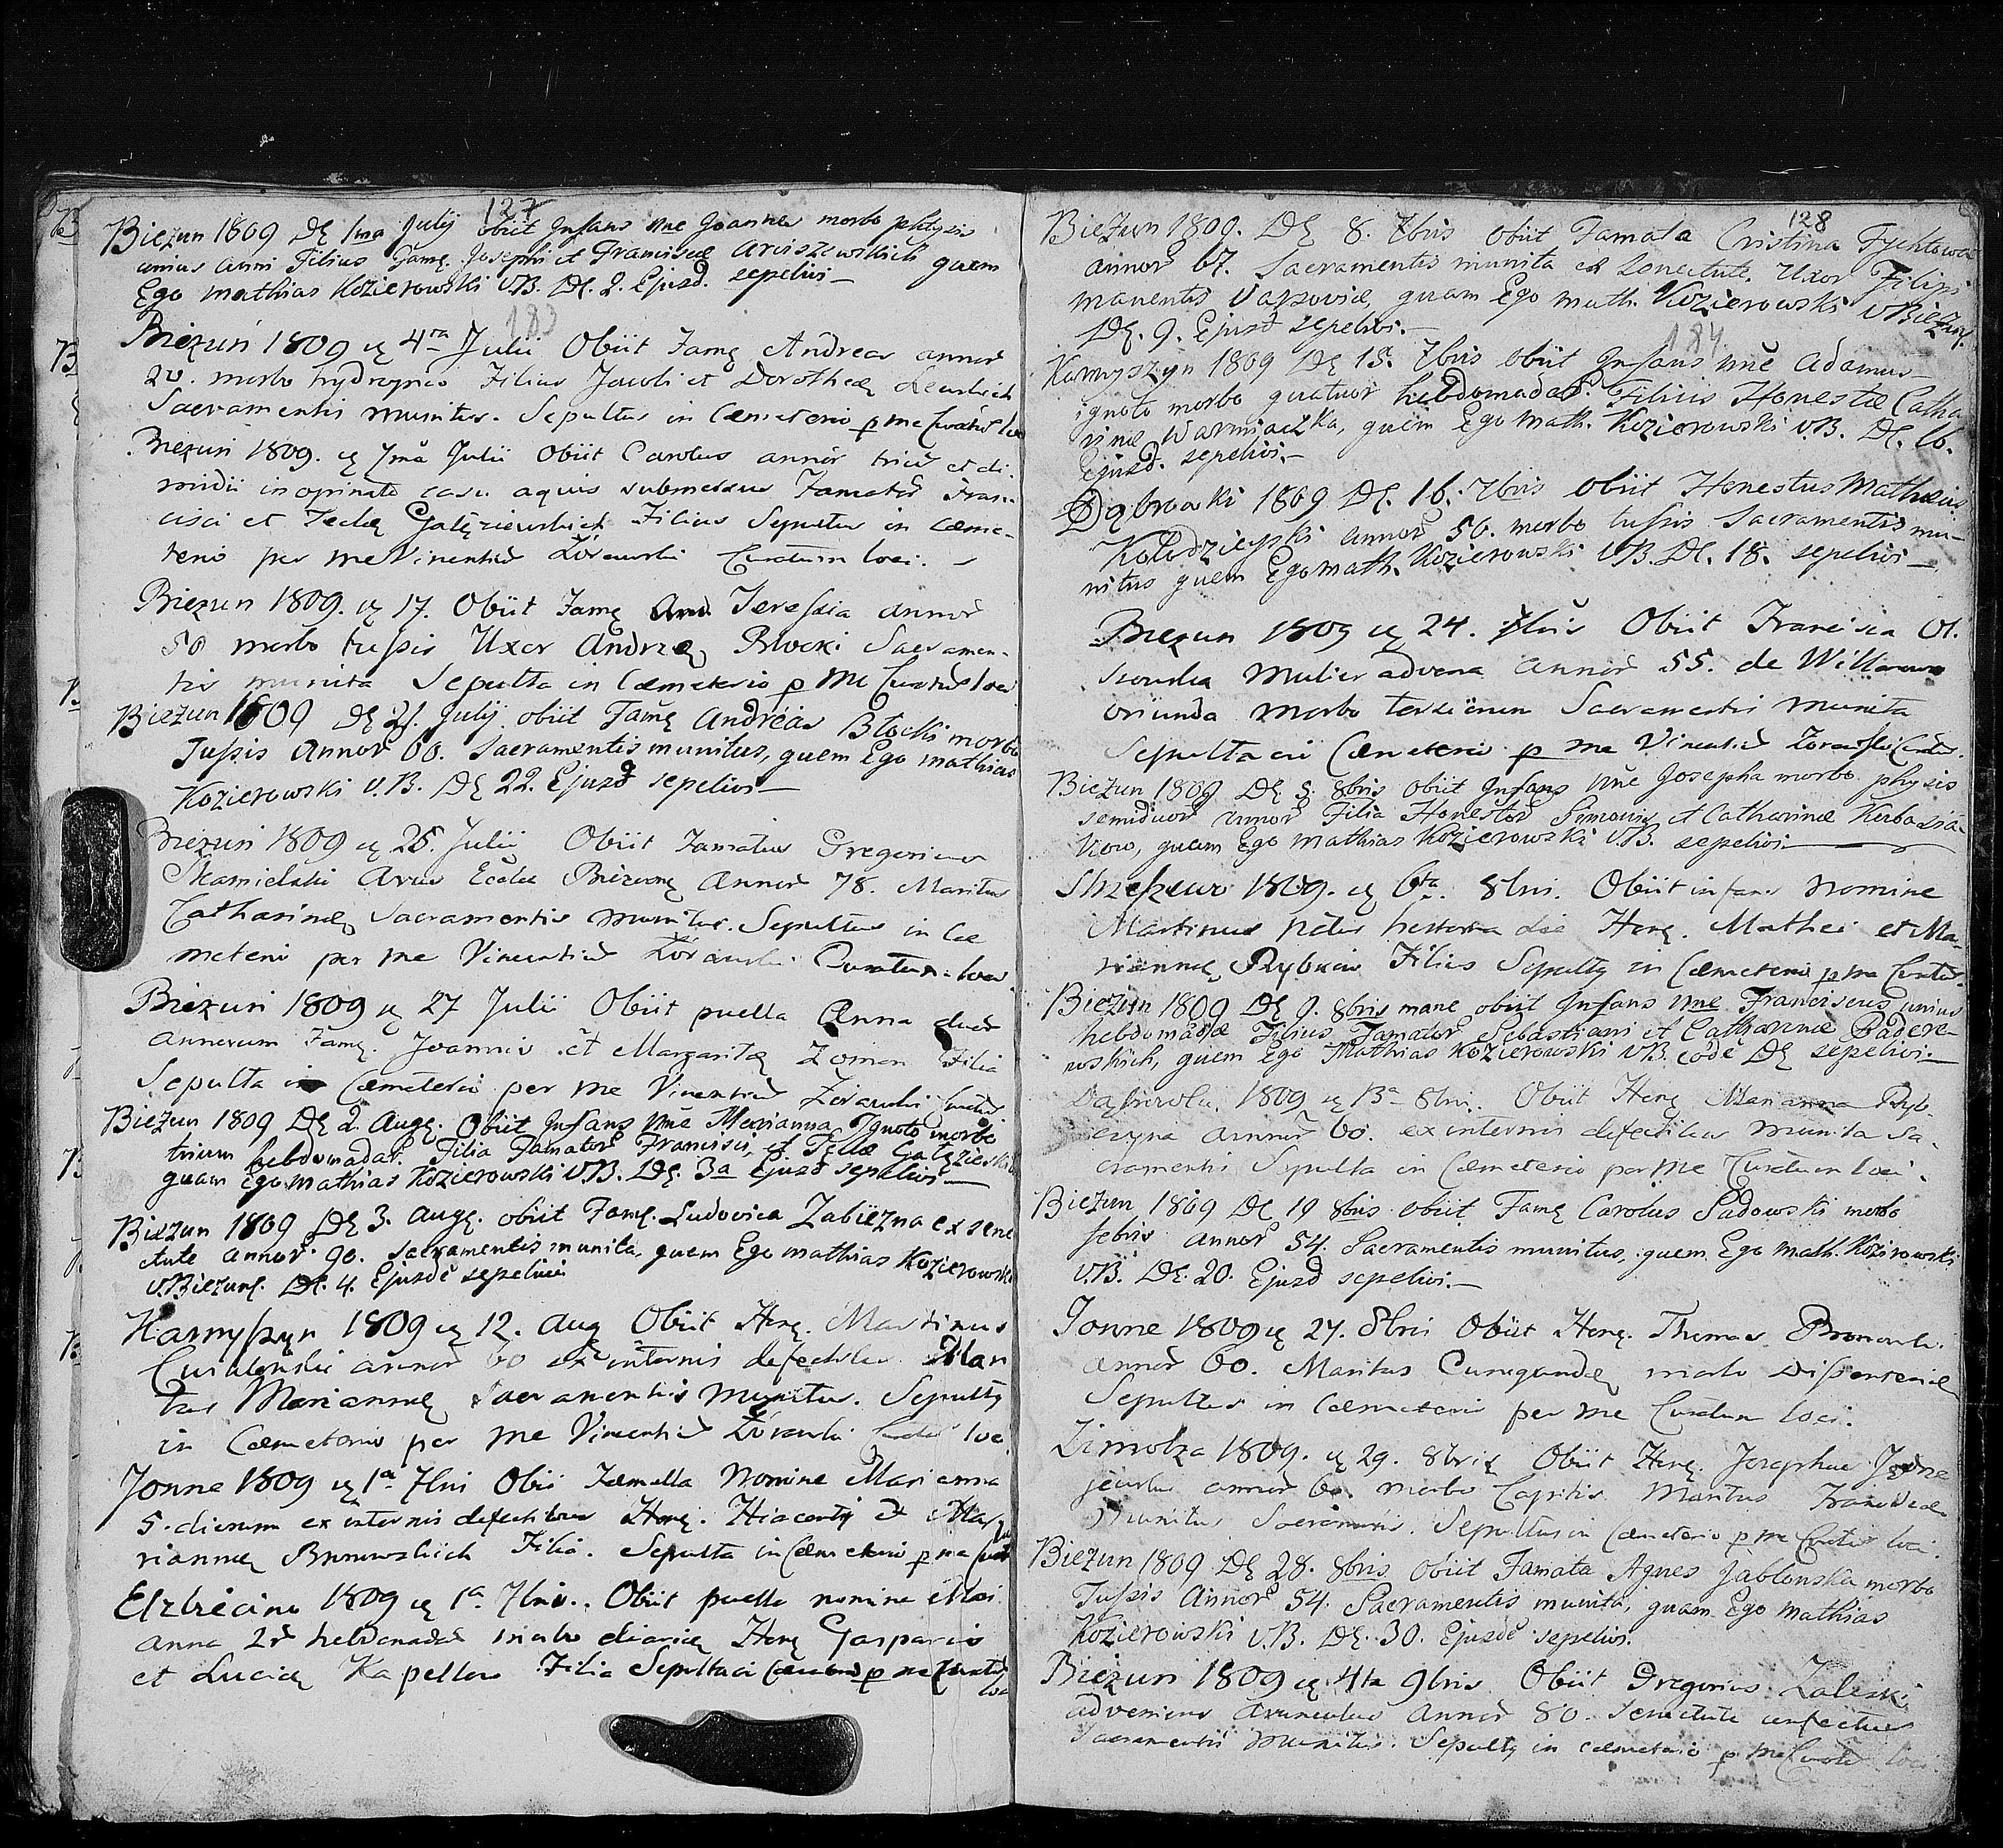 127
Biezun 1809 Dę 1ma Julij obiit Infans nne Joannes morbo phtysis
unius anni Filius Famę. Josephi et Franciscæ Ariszewskich quem
Ego Mathias Kozierowski V.B. Dę. 2. Ejusd. sepelivi –
183
Biezuń 1809 ę 4ta Julii Obiit Famę Andreas annor
20. morbo hydropico Filius Jacobi et Dorotheæ
Sacramentis munitus. Sepultus in Cæmeterio p me Curatū loci
Biezuń 1809. ę 7ma Julii Obiit Carolus annor triū et di
midii inopinato casu aquis submersus Famator Fran-
cisci et Teclę Gałęziewskich Filius Sepultus in cæme-
terio per me Vincentiū Żórawski Curatum loci. –
Biezuń 1809. ę 17. Obiit Famę And Teressia annor
50 morbo tussis Uxor Andrzeę Błocki Sacramen-
tis munita Sepulta in Cæmeterio p me Curatū loci
Biezun 1809 Dę 21. Julij obiit Famę Andreas Błocki morbo
Tussis Annor 60. Sacramentis munitus, quem Ego Mathias
Kozierowski V.B. Dę 22. Ejusd sepelivi –
Biezuń 1809 ę 25. Julii Obiit Famatus Gregorius
Avus Eccłæ Biezunę Annor 78. Maritus
Catharinæ, Sacramentis munitus. Sepultus in Cæ
meterio per me Vincentiū Żórawski Curatum loci
Biezuń 1809 ę 27 Julii Obiit puella Anna duor
annorum Famę. Joannis et Margaritæ Filia
Sepulta in Cæmeterio per me Vincentiū Żórawski Curatū
Biezun 1809 Dę 2. Augę. Obiit Infans nne Marianna Ignoto morbo
trium hebdomadar. Filia Famator Francisci, et Teclæ Gałęziewskich
quam Ego Mathias Kozierowski V.B. Dę. 3a Ejusd sepelivi –
Biezun 1809 Dę 3. Augę. obiit Famę. Ludovica Zabiezna ex sene
ctute annor 90. Sacramentis munita, quem Ego Mathias Kozierowski
V.Biezunę. Dę. 4. Ejusdē sepelivi
Karnyszyn 1809 ę 12. Aug Obiit Honę. Martinus
annor 60 ex internis defectibus Mari
tus Mariannæ Sacramentis munitus. Sepultę
in Cæmeterio per me Vincentiū Żórawski Curatū loci
Jonne 1809 ę 1a 7bris Obii Femella Nomine Marianna
5. dierum ex internis defectibus Honę. Hiacenty et Ma-
riannæ Brunowskich Filia. Sepulta in Cæmeterio p me Curatū
Elzbiecino 1809 ę 1a 7bris. Obiit puella nomine Mari
anna 2r hebdomadar morbo Honę Gasparis
et Luciæ Kapellow Filia Sepulta in Cæmet p me Curatū
loci
128
Biezun 1809. Dę 8. 7bris obiit Famata Cristina Fychtowa
annor 67. Sacramentis munita ex Senectute, Uxor Filipi
manentis Varsoviæ, quam Ego Math. Kozierowski V Biezunę.
Dę. 9. Ejusd sepelivi. –
184
Karnyszyn 1809 Dę 15. 7bris obiit Infans nne Adamus
ignoto morbo quatuor hebdomadar. Filius Honestæ Catha
rinæ Warmiaczka, quem Ego Math. Kozierowski V.B. Dę. 16.
Ejusd. sepelivi. –
Dąbrowki 1809 Dę. 16. 7bris obiit Honestus Mathæus
Kołodzieyski annor 50. morbo tussis Sacramentis mu-
nitus quem Ego Math. Kozierowski V.B. Dę. 18. sepelivi –
Biezun 1809 ę 24. 7bris Obiit Francisca Ol.
szowska Mulier advena annor 55. de Willanowo
oriunda morbo Sacramentis munita
Sepulta in Cæmeterio p me Vincentiū Żorawski Curatū.
Biezun 1809 Dę 5. 8bris obiit Infans nne Josepha morbo physis
semiduor annor Filia Honestor Simonis et Catharinæ Kurbasia-
kow, quam Ego Mathias Kozierowski V.B. sepelivi. –
Strzeszewo 1809. ę 6ta. 8bris. Obiit infans Nomine
Martinus natus hesterna die Honę. Mathei et Ma-
riannæ, Filius Sepultę in Cæmeterio p me Curatū
Biezun 1809 Dę 9. 8bris mane obiit Infans nne Franciscus unius
hebdomadæ Filius Famator Sebastiani et Catharinæ Badere-
wskich, quem Ego Mathias Kozierowski V.B. eodē Dę sepelivi –
Dąbrowki. 1809 ę 13a 8bris. Obiit Honę Marianna Ryb-
czyna annor 60. ex internis defectibus munita Sa-
cramentis Sepulta in Cæmeterio per me Curatum loci.
Biezun 1809 Dę 19 8bris obiit Famę Carolus Sadowski morbo
febris annor 54. Sacramentis munitus, quem Ego Math. Kozirowski
V.B. Dę. 20. Ejusd sepelivi. –
Jonne 1809 ę 27. 8bris Obiit Honę. Thomas
annor 60. Maritus Cunegundæ, morbo
Sepultus in Cæmeterio per me Curatum loci.
Zimolza 1809. ę 29. 8bris Obiit Honę. Josephus
annor 60. morbo Capitis Maritus Franciscæ
Munitus Sacramentis. Sepultus in Cæmeterio p me Curatū loci.
Biezun 1809 Dę 28. 8bris obiit Famata Agnes Jabłonska morbo
Tussis Annor 54. Sacramentis munita, quam Ego Mathias
Kozierowski V.B. Dę. 30. Ejusdē sepelivi.
Biezuń 1809 ę 4ta 9bris Obiit Gregorius Zaleski
adveniens avunculus annor 80. Senectute confectus
Sacramentis munitus. Sepultę in cæmeterio p me Curatū loci